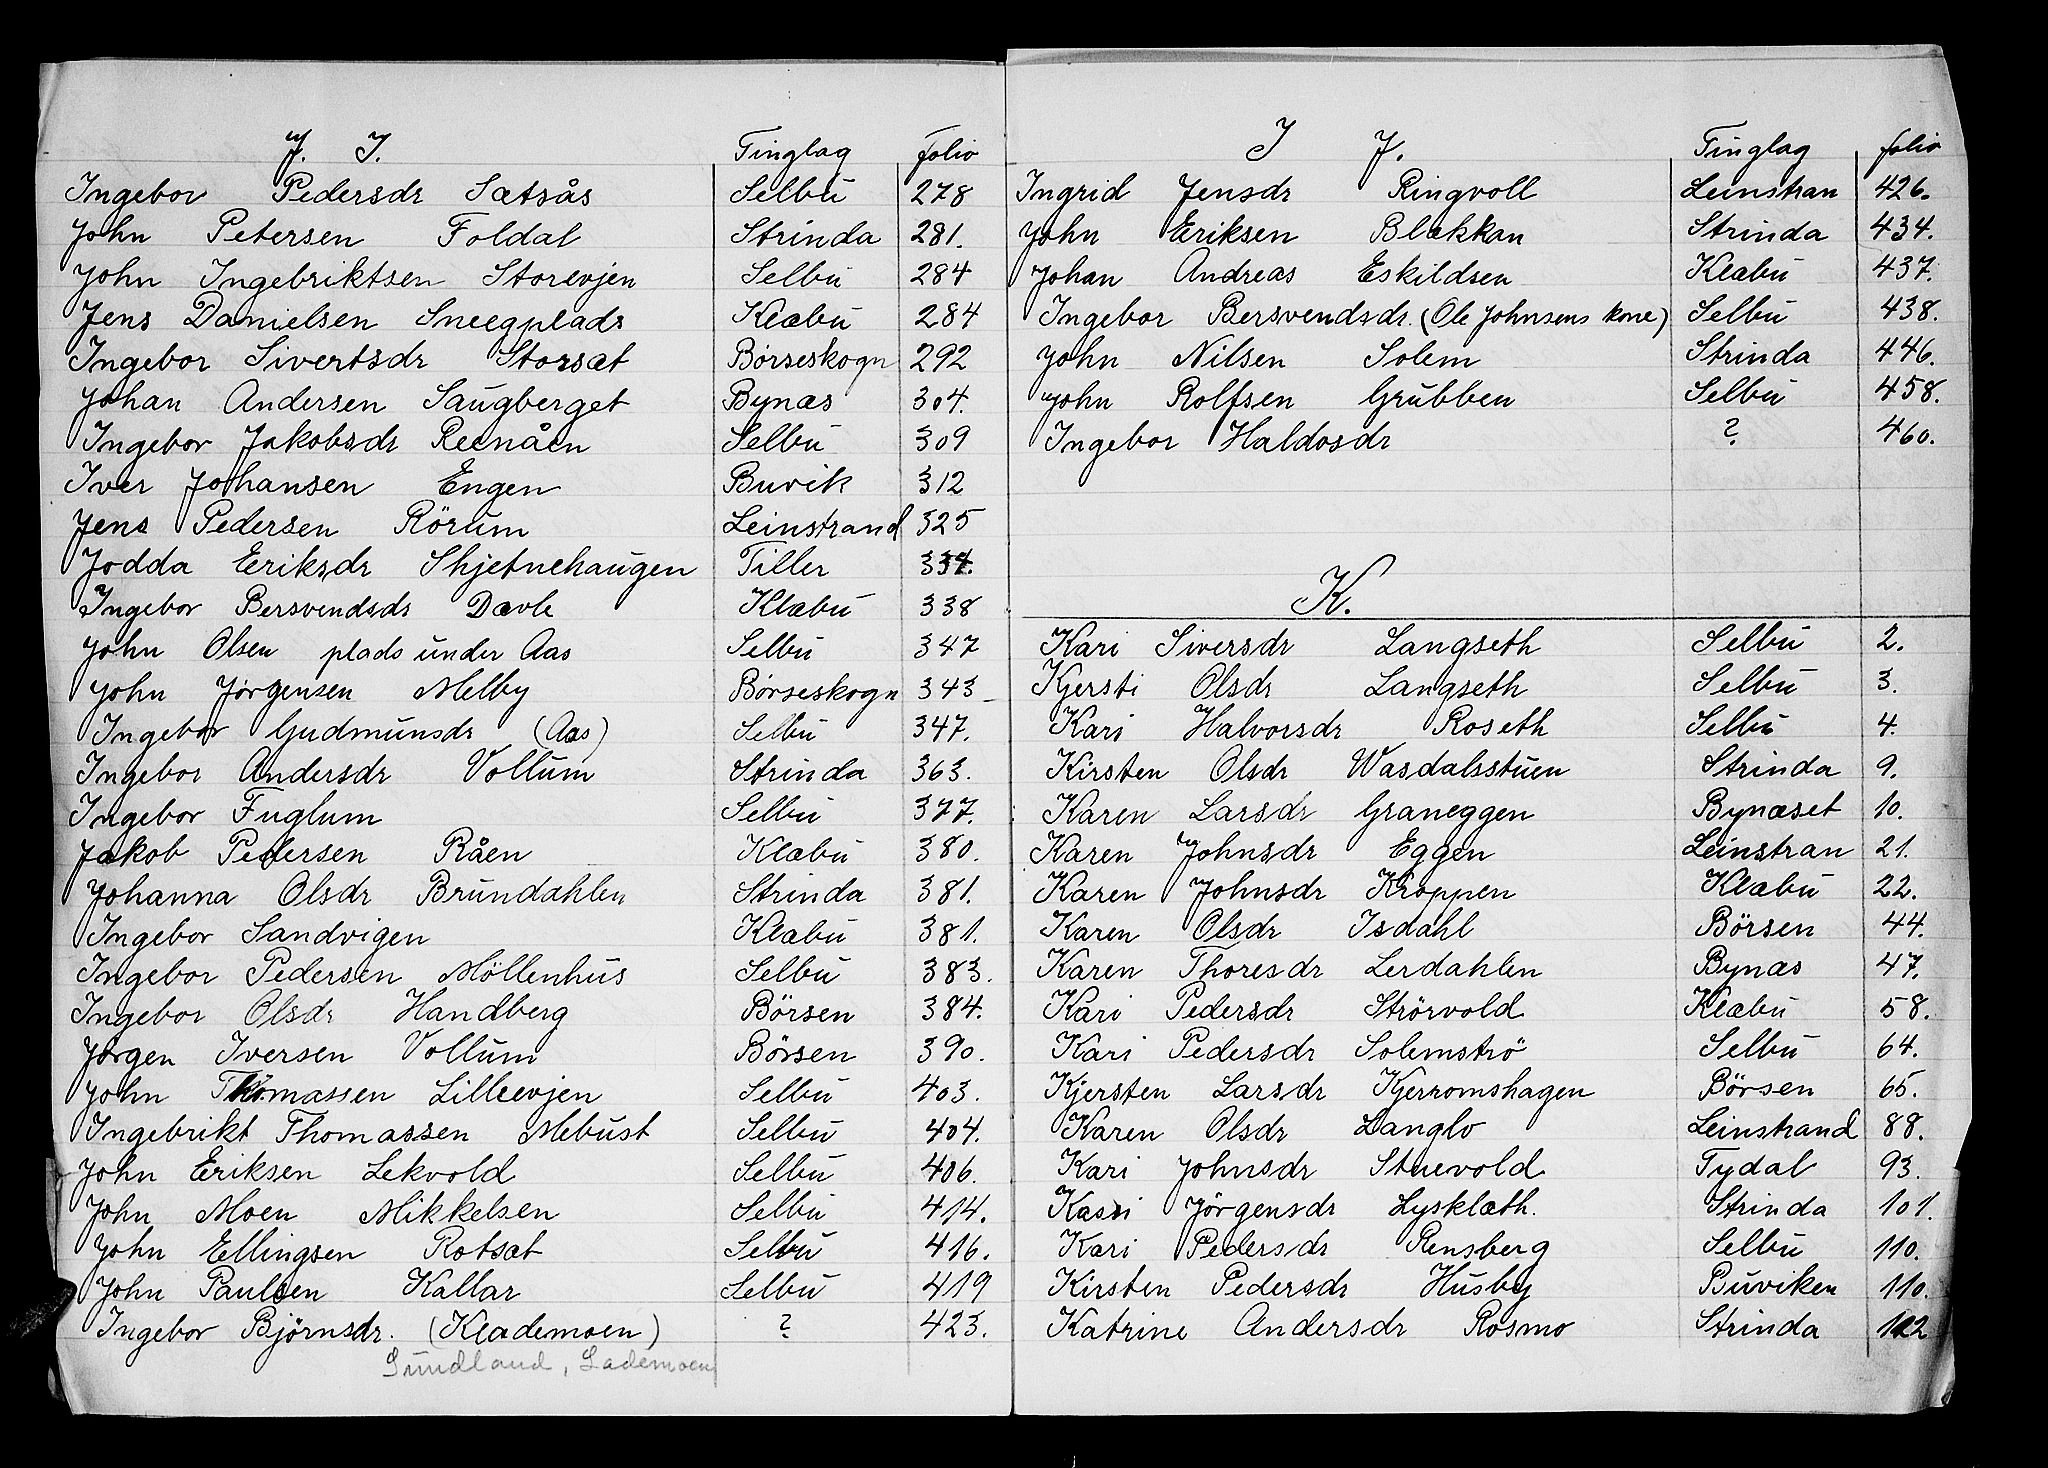 J. I. Tinglag folio
Ingebor Pedersdr Sætsås Selbu 278
John Petersen Foldal Strinda 281.
John Ingebriktsen Storevjen Selbu 284
Jens Danielsen Sneegplads Klæbu 284
Ingebor Sivertsdr Storsæt Børseskogn 292
Johan Andersen Saugberget Bynæs 304.
Ingebor Jakobsdr Reenåen Selbu 309
Iver Johansen Engen Buvik 312
Jens Pedersen Rörum Leinstrand 325
Jodda Eriksdr Skjetnehaugen Tiller 334.
Ingebor Bersvendsdr Davle Klæbu 338
John Olsen plads under Aas Selbu 347
John Jørgensen Melby Børseskogn 343
Ingebor Gudmunsdr (Aas) Selbu 347.
Ingebor Andersdr Vollum Strinda 363.
Ingebor Fuglum Selbu 377.
Jakob Pedersen Råen Klæbu 380.
Johanna Olsdr Brundahlen Strinda 381.
Ingebor Sandvigen Klæbu 381.
Ingebor Pedersen Möllenhus Selbu 383.
Ingebor Olsdr Handberg Börsen 384.
Jörgen Iversen Vollum Börsen 390.
John Thomassen Lilleevjen Selbu 403.
Ingebrikt Thomassen Mebust Selbu 404.
John Eriksen Lekvold Selbu 406.
John Moen Mikkelsen Selbu 414.
John Ellingsen Rotsæt Selbu 416.
John Paulsen Kallar Selbu 419
Ingebor Björnsdr. (Klademoen) ? 423.
Sundland, Lademoen
I J. Tinglag folio
Ingrid Jensdr Ringvoll Leinstran 426.
John Eriksen Blekkan Strinda 434.
Johan Andreas Eskildsen Klæbu 437.
Ingebor Bersvendsdr. (Ole Johnsens kone) Selbu 438.
John Nilsen Solem Strinda 446.
John Rolfsen Grubben Selbu 458.
Ingebor Haldosdr ? 460.
K.
Kari Siversdr Langseth Selbu 2.
Kjersti Olsdr Langseth Selbu 3.
Kari Halvorsdr Roseth Selbu 4.
Kirsten Olsdr Wasdalsstuen Strinda 9.
Karen Larsdr Graneggen Bynæset 10.
Karen Johnsdr Eggen Leinstran 21.
Karen Johnsdr Kroppen Klæbu 22.
Karen Olsdr Isdahl Börsen 44.
Karen Thoresdr Lerdahlen Bynæs 47.
Kari Pedersdr Strörvold Klæbu 58.
Kari Pedersdr Solemströ Selbu 64.
Kjersten Larsdr Kjerromshagen Börsen 65.
Karen Olsdr Langlo Leinstrand 88.
Kari Johnsdr Stuevold Tydal 93.
Kari Jörgensdr Lysklæth. Strinda 101.
Kari Pedersdr Rensberg Selbu 110.
Kirsten Pedersdr Husby Buviken 110.
Katrine Andersdr Rosmo Strinda 112